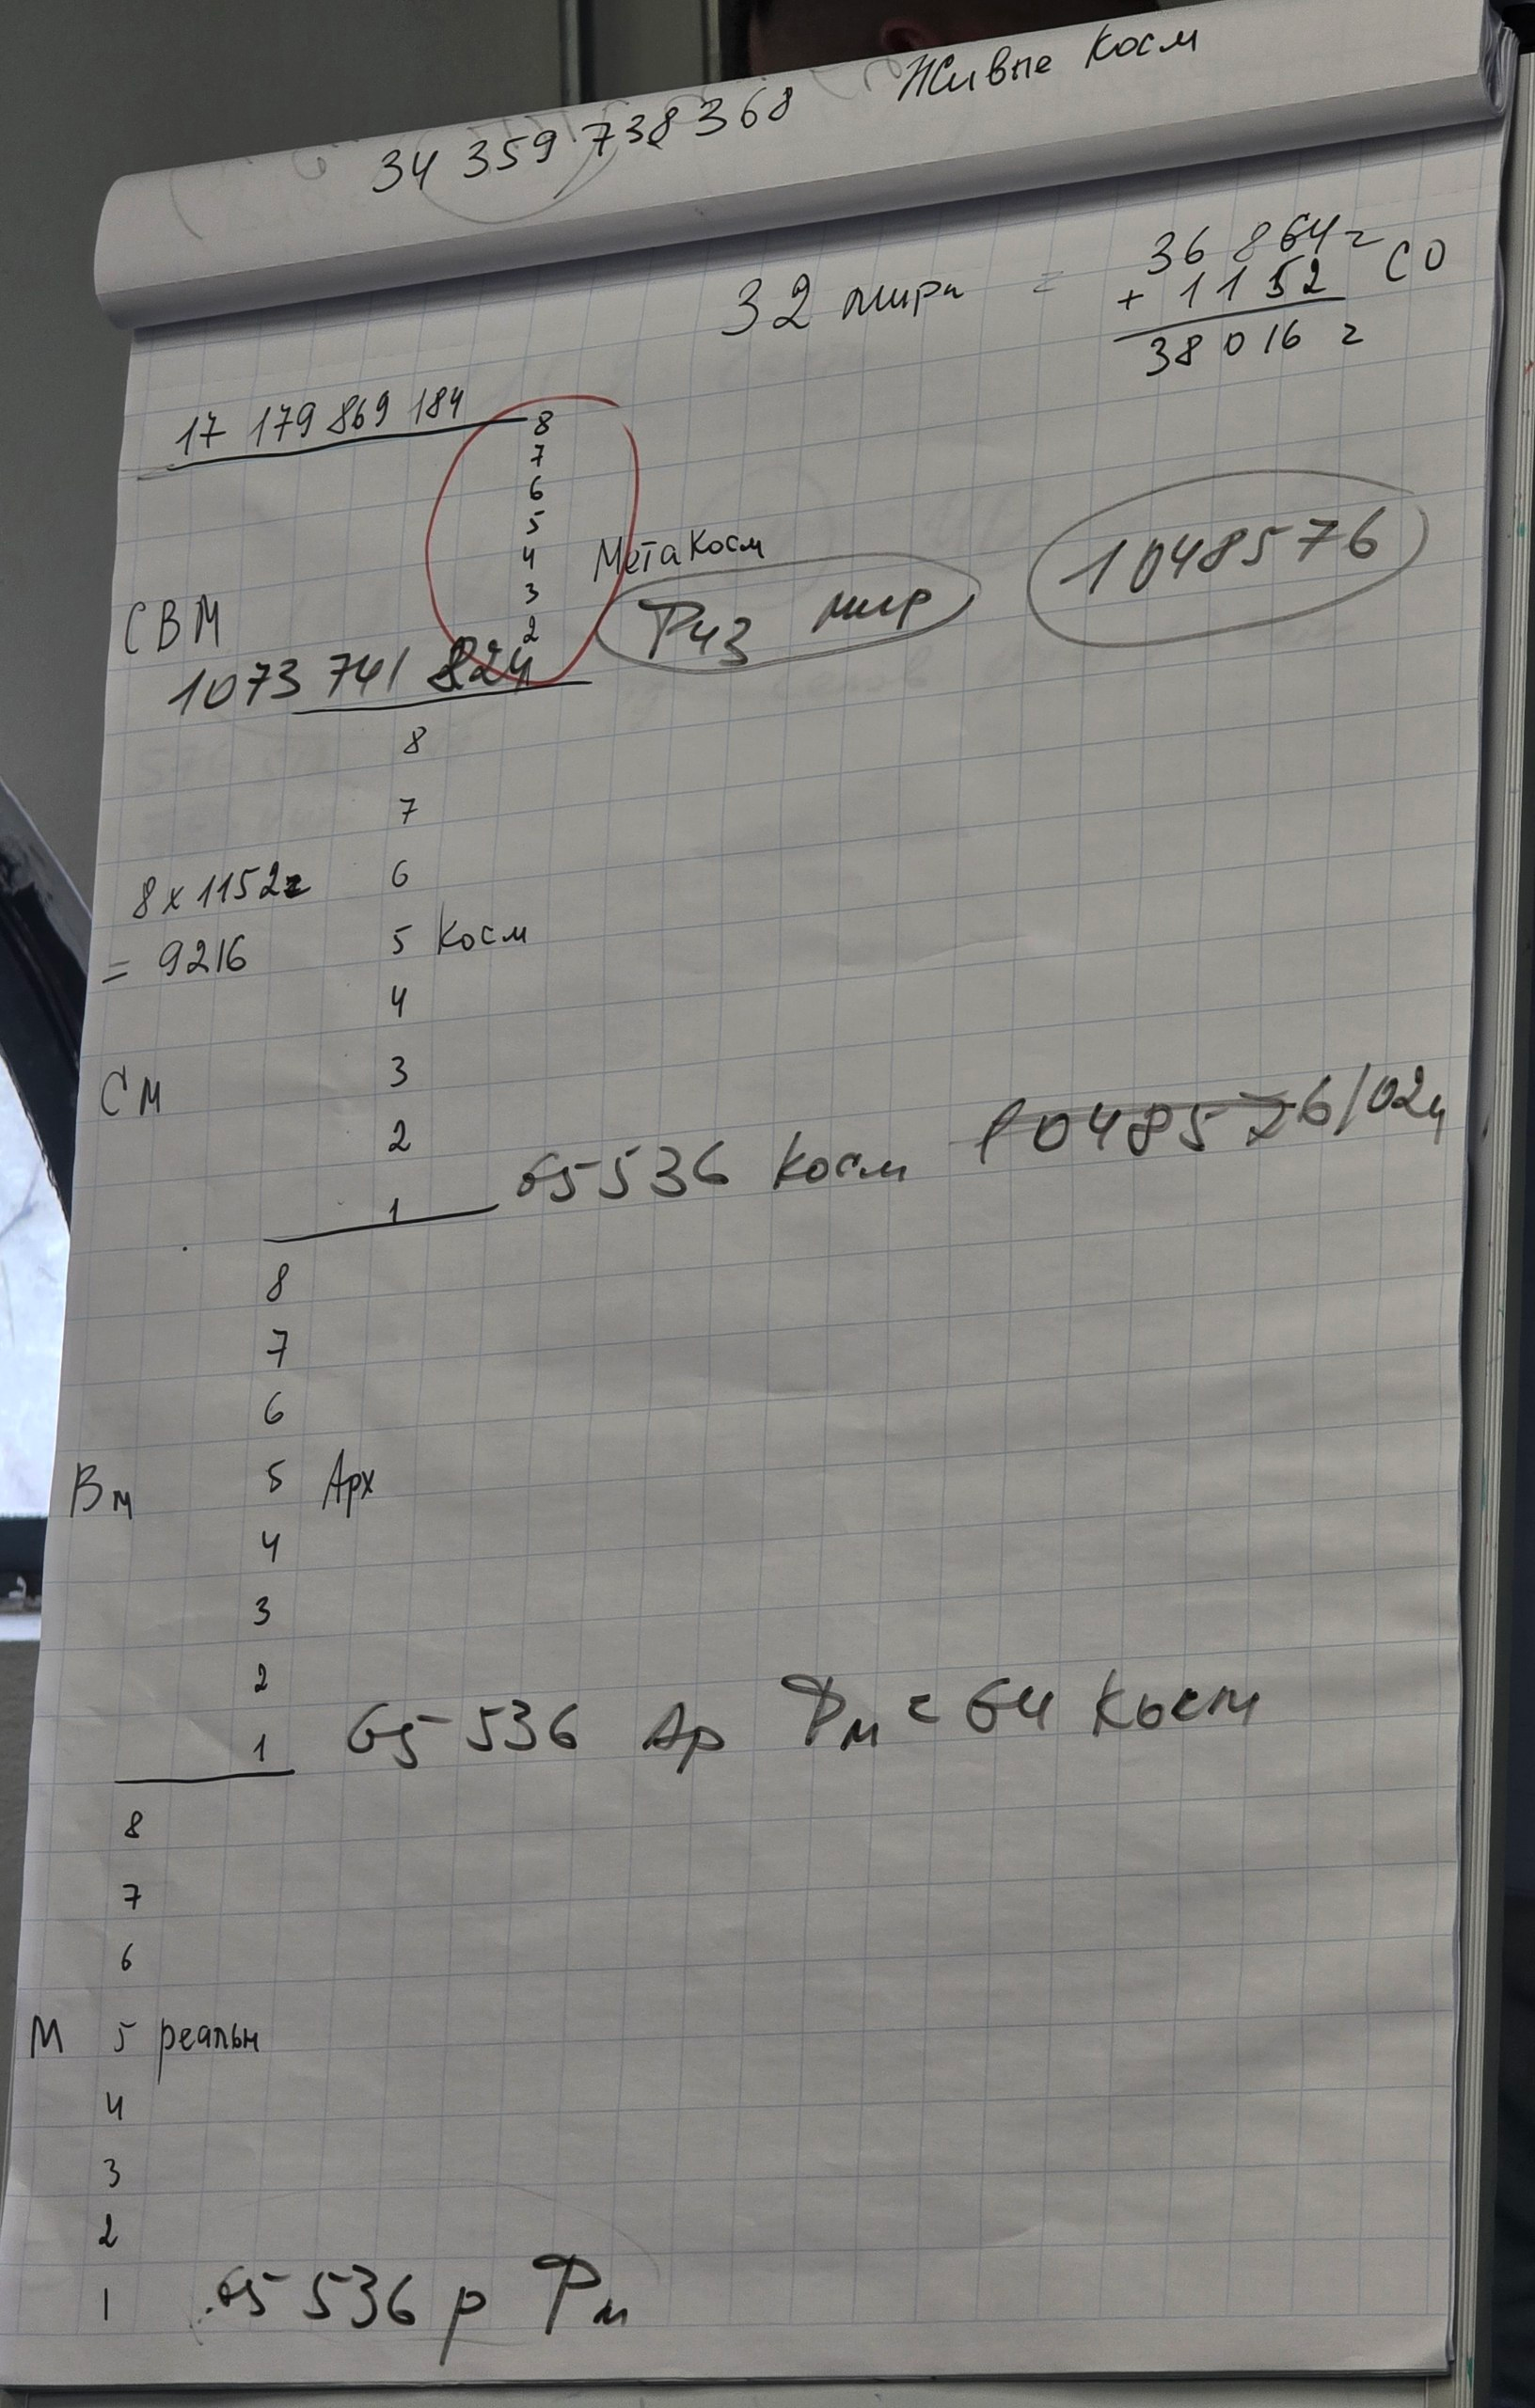 34 359 738 368 Живые Косм
32 мира = 36 864 г
+ 1152 СО
38 016 г
17 179 869 184 8
7
6
5
4 Мета Косм
3 Физ мир 1048576
СВМ 2
1073 741 824
8
7
8 x 1152 = 6
= 9216 5 Косм
4
СМ 3
2
1 65 536 Косм 1048576/024
8
7
6
Вм 5 Арх
4
3
2
1 65 536 Ар Фм = 64 Косм
8
7
6
М 5 реальн
4
3
2
1 65 536 р Фм